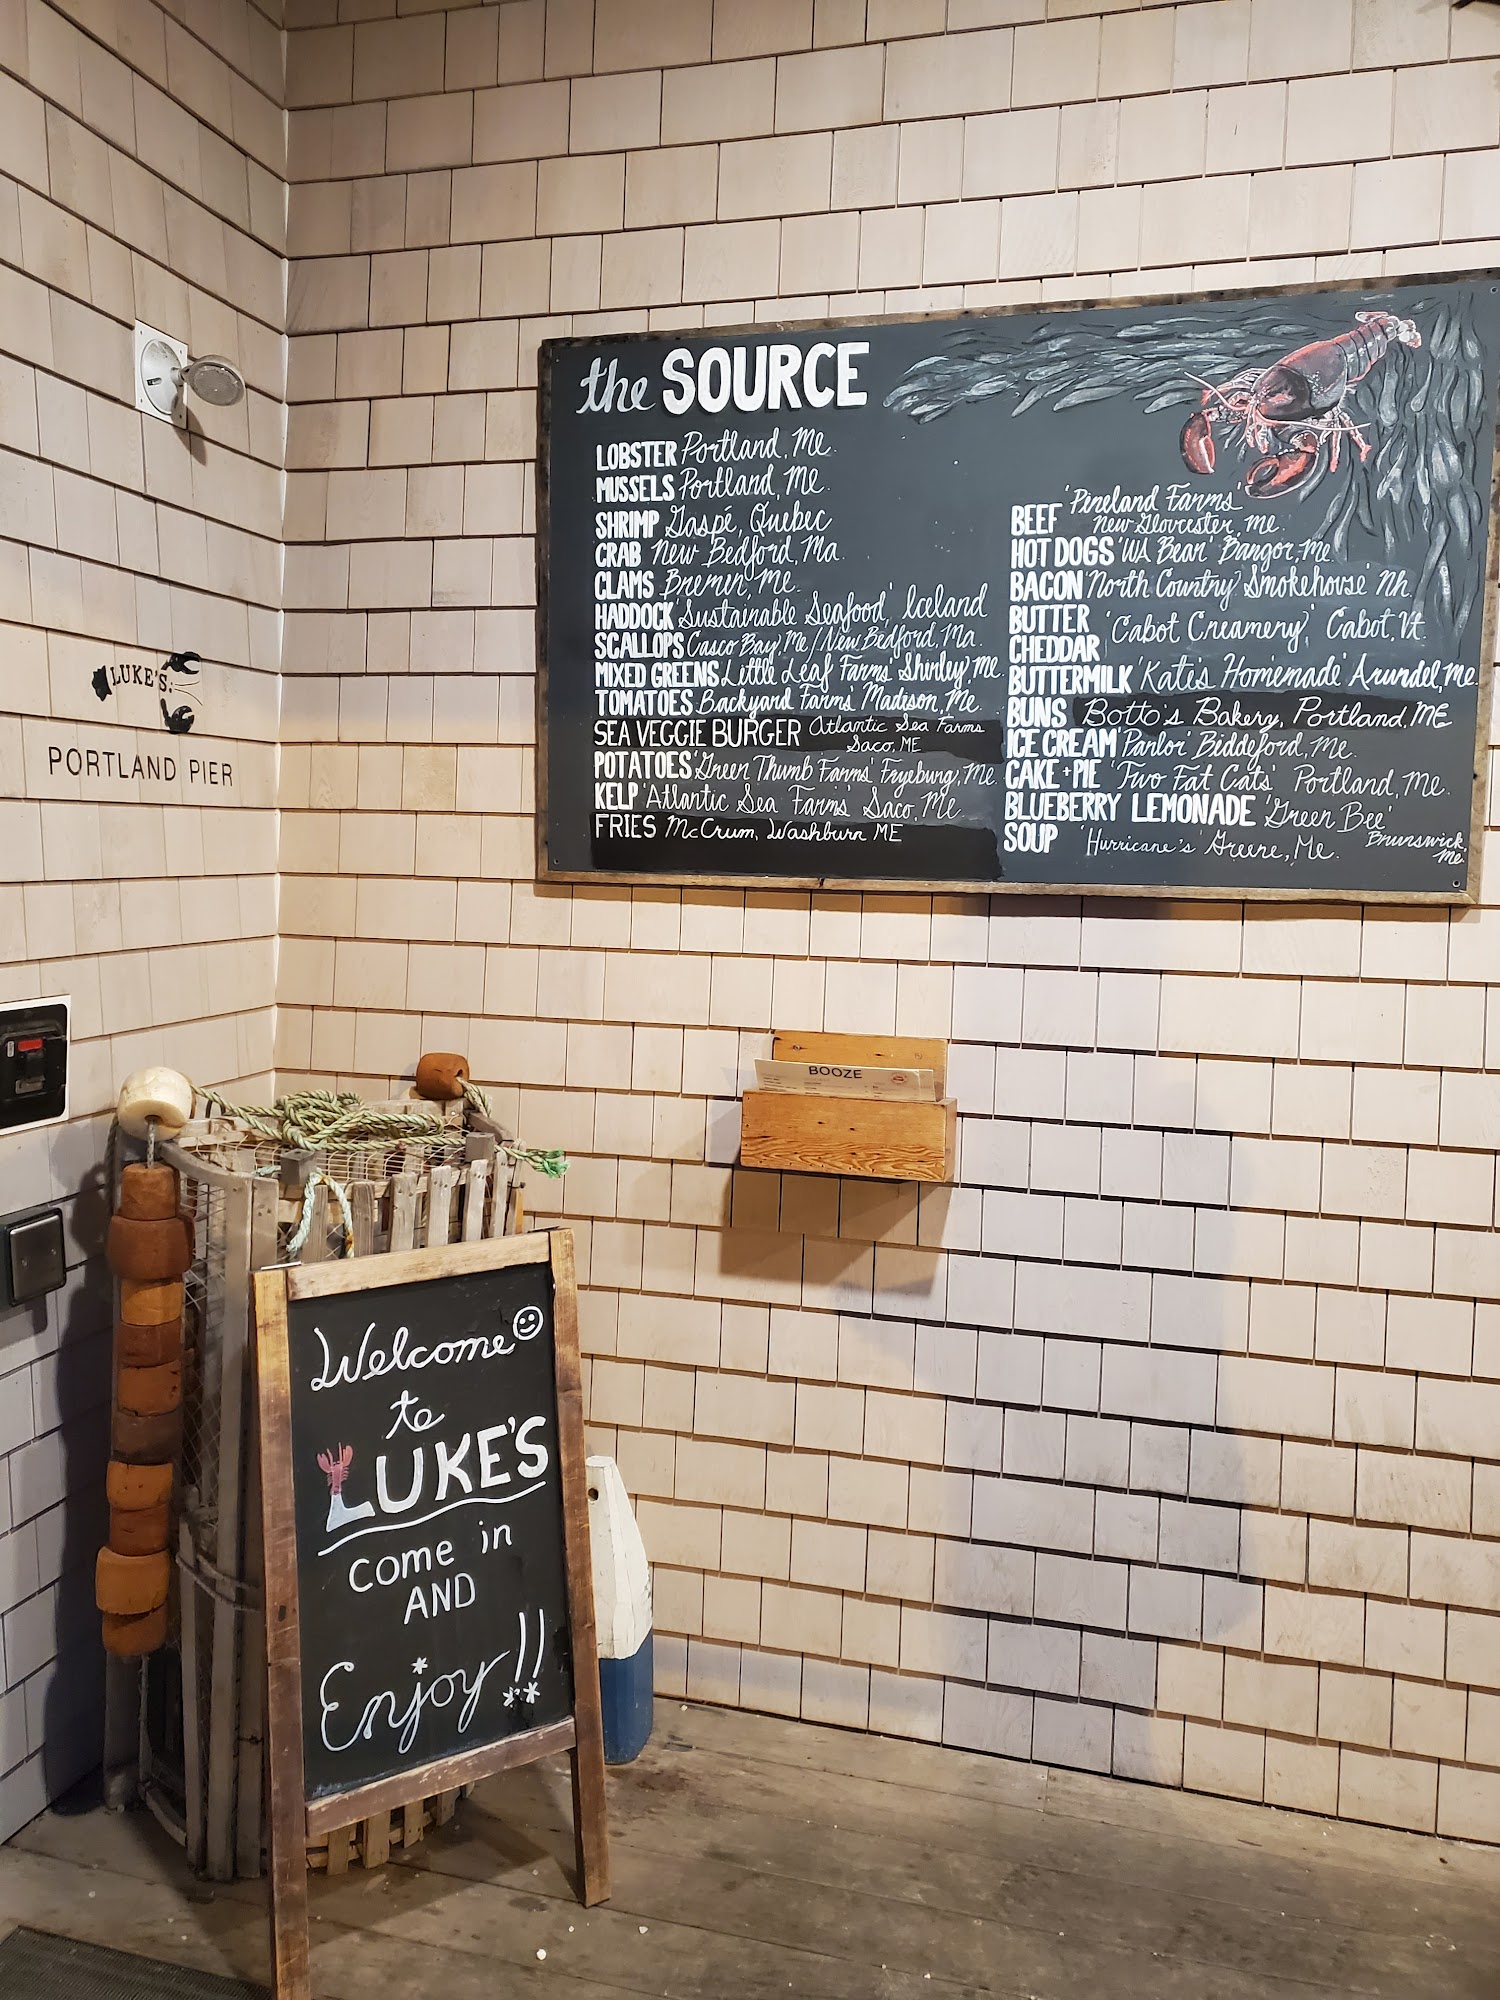 the SOURCE
LOBSTER Portland, Me.
MUSSELS Portland, Me.
SHRIMP Gaspé, Quebec
CRAB New Bedford, Ma.
CLAMS Bremen, Me.
HADDOCK 'Sustainable Seafood', Iceland
SCALLOPS Casco Bay, Me/New Bedford, Ma.
MIXED GREENS Little Leaf Farms' Shirley, Me.
TOMATOES Backyard Farms' Madison, Me.
SEA VEGGIE BURGER Atlantic Sea Farms
Saco, ME
POTATOES 'Green Thumb Farms' Fryeburg, Me.
KELP 'Atlantic Sea Farms' Saco, Me
FRIES McCrum, Washburn ME
BEEF 'Pineland Farms'
New Gloucester, Me.
HOT DOGS 'WA Bean' Bangor, Me.
BACON 'North Country Smokehouse' Nh.
BUTTER
CHEDDAR 'Cabot Creamery', Cabot, Vt.
BUTTERMILK 'Kate's Homemade' Arundel, Me.
BUNS Botto's Bakery, Portland, ME
ICE CREAM 'Parlor' Biddeford, Me.
CAKE + PIE 'Two Fat Cats' Portland, Me.
BLUEBERRY LEMONADE 'Green Bee'
Brunswick, Me.
SOUP 'Hurricane's' Greene, Me.
LUKE'S
PORTLAND PIER
BOOZE
Welcome
to
LUKE'S
come in
AND
Enjoy!!